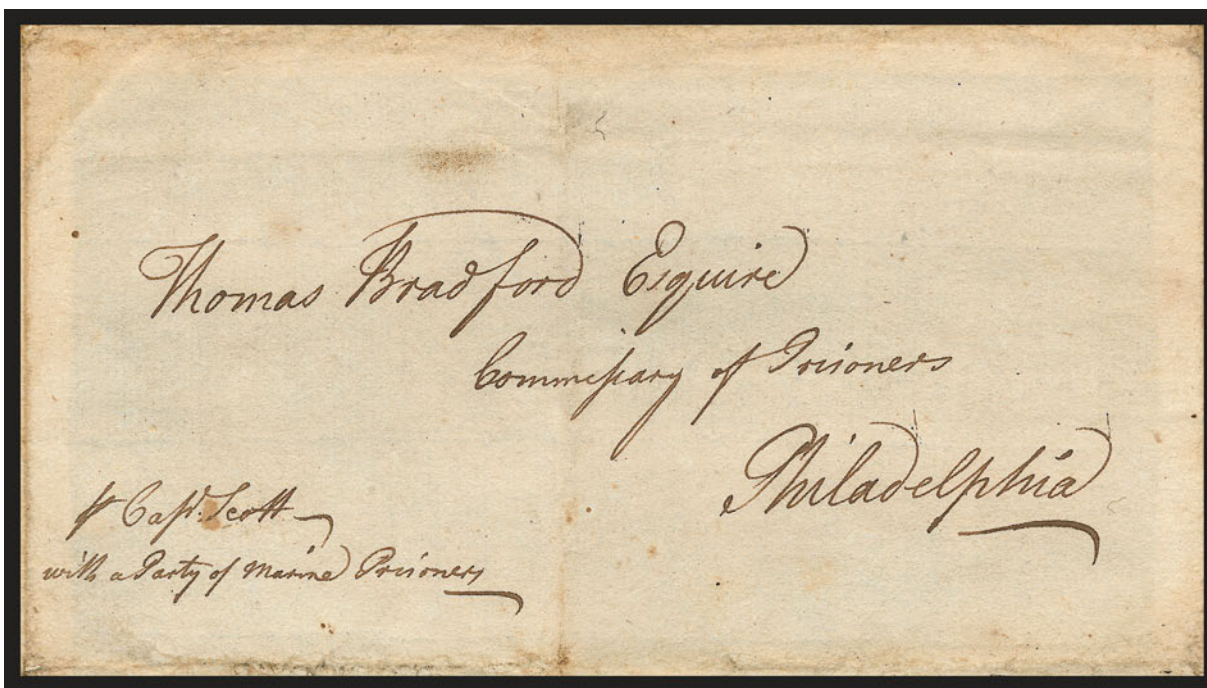 Thomas Bradford Esquire
Commissary of Prisoners
Philadelphia
⅌ Capt. Scott
with a Party of Marine Prisoners